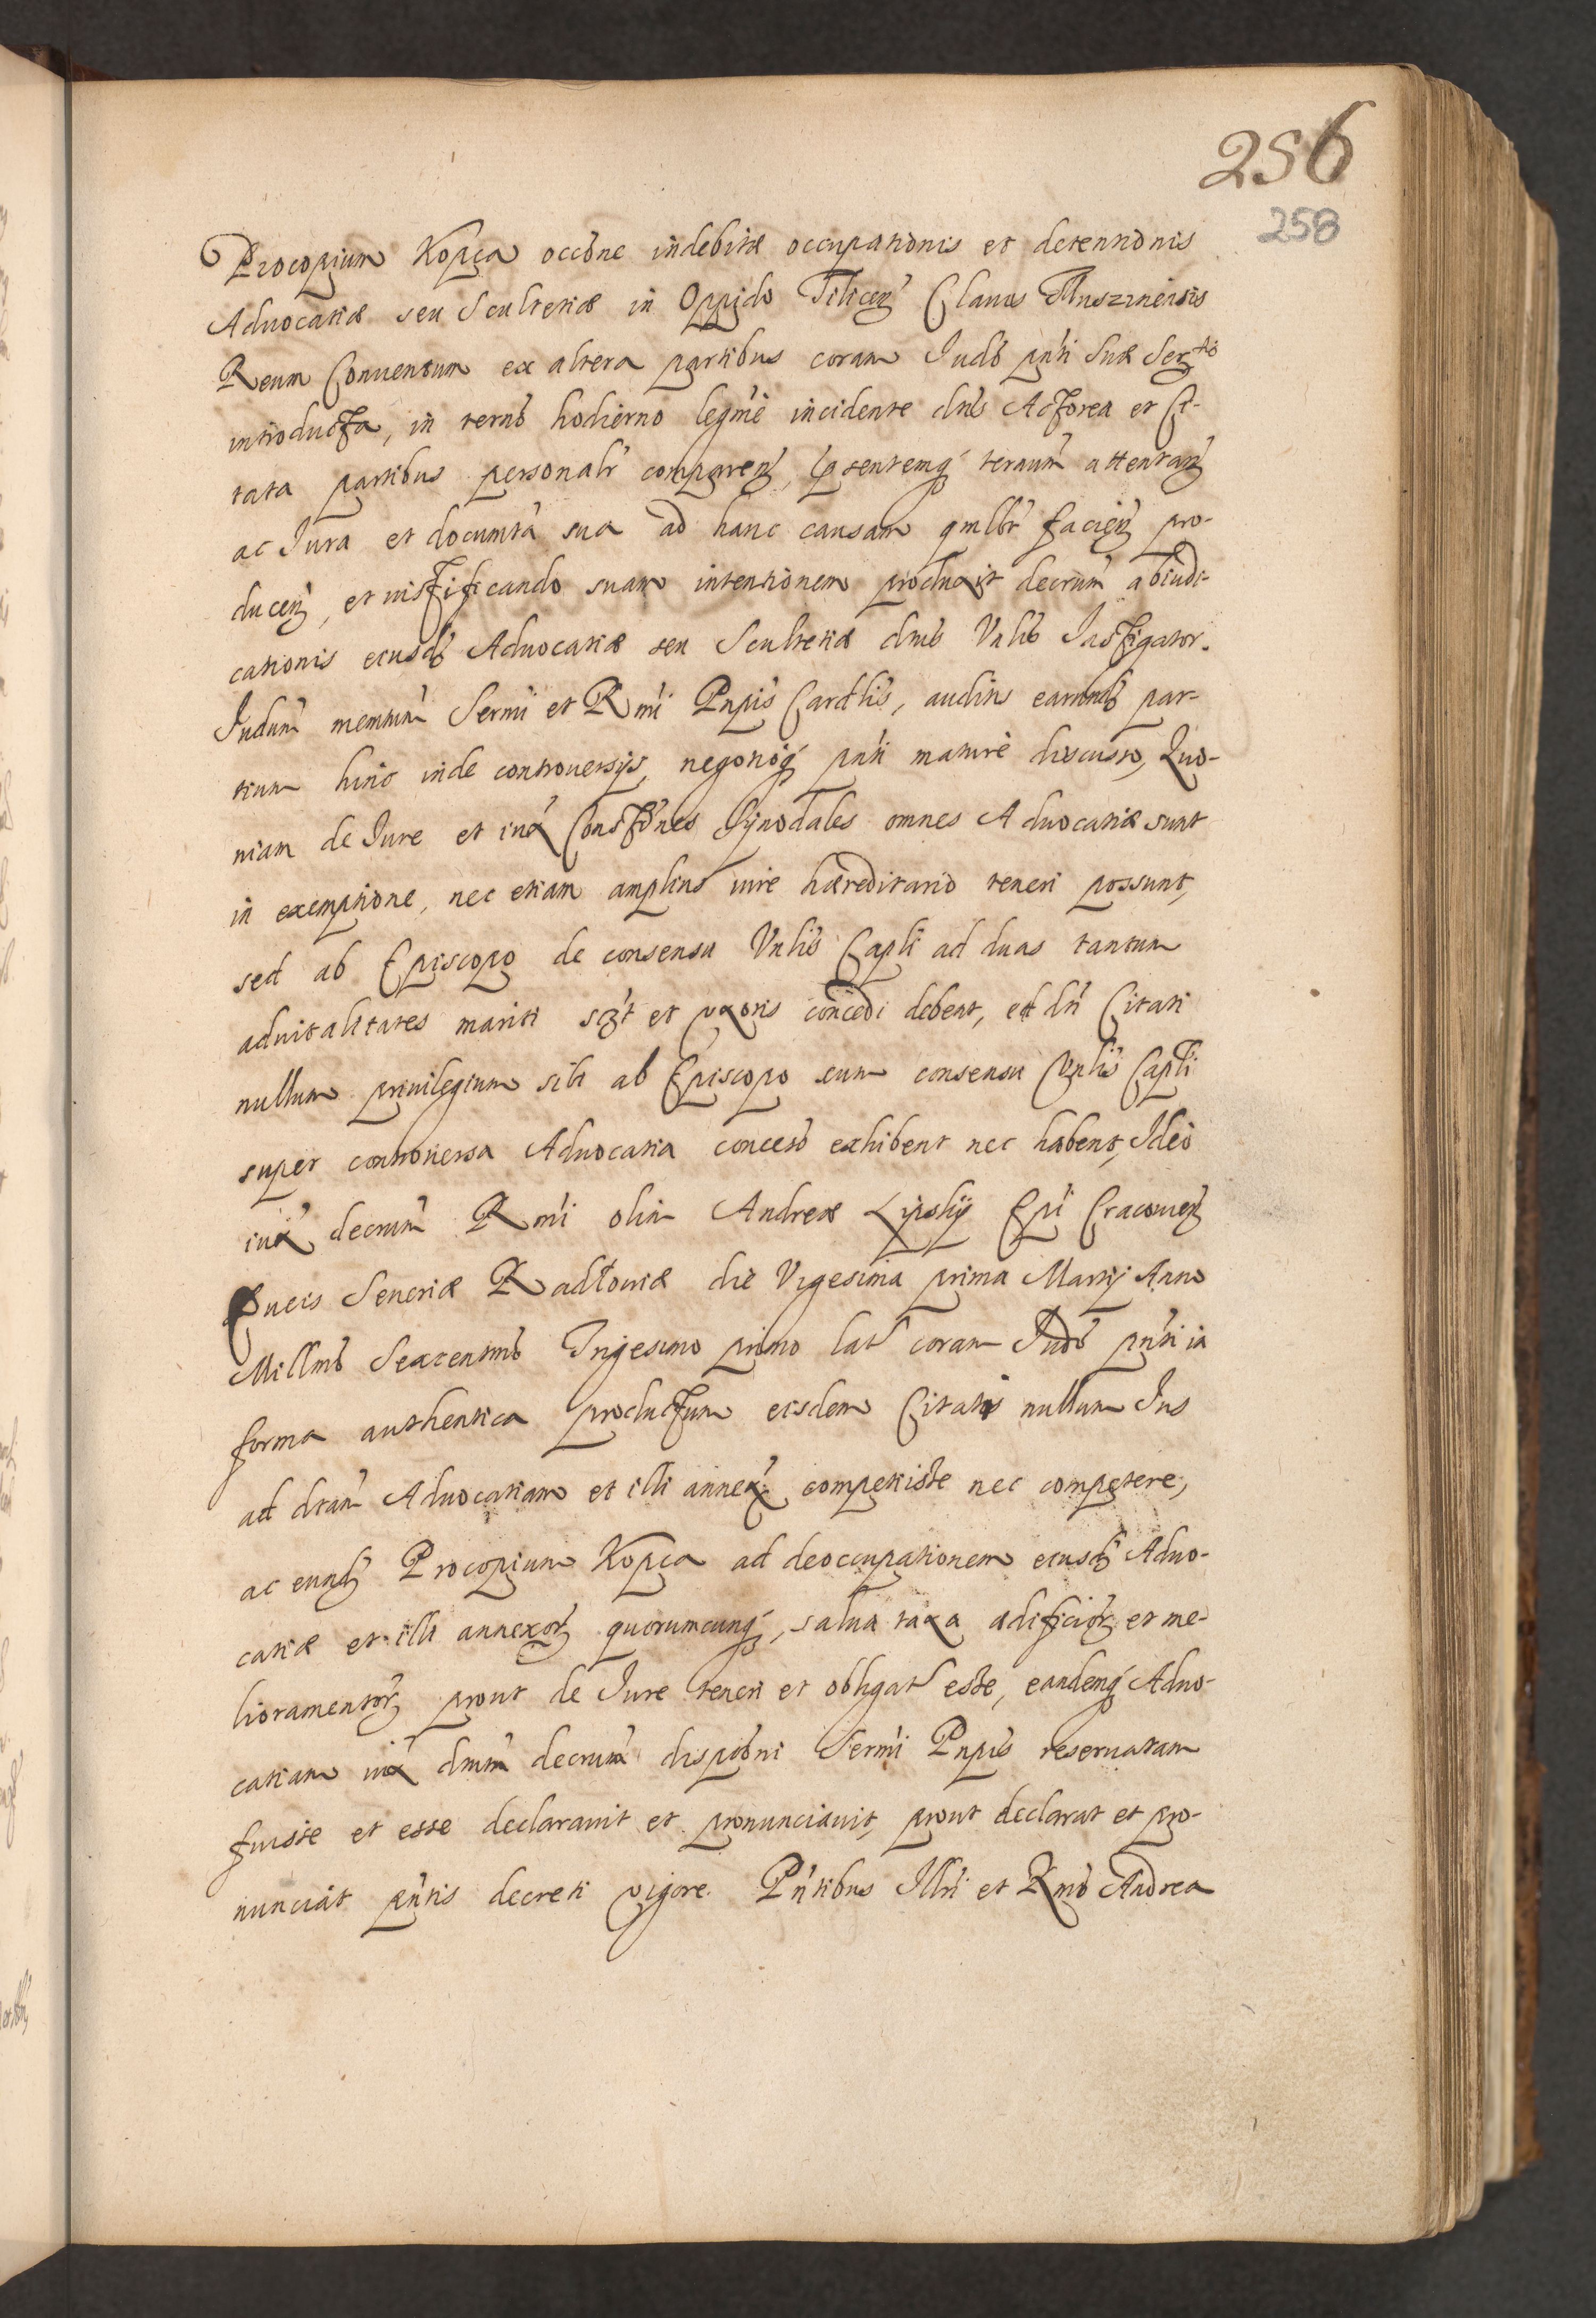 256
258
Procopium Kopça occ̄one indebitæ occupationis et detentionis
Aduocatiæ seu Scultetiæ in Oppido Tilicen̄ Clauis Muszinensis
Reum Conuentum ex altera partibus coram Jud̄o pn̄ti Suæ Ser^tis
introducta, in termō hodierno legm̄e incidente dn̄is Actorea et Ci-
tata partibus personalr̄ comparen̄, p̄sentemq́ termū attentan̄
ac Jura et documt̄a sua ad hanc causam qm̄lbt̄ facien̄ pro-
ducen̄, et iustificando suam intentionem produxit decrūm abiudi-
cationis eiusd̄ Aduocatiæ seu Scultetiæ dn̄us Vn̄lis Instigator.
Judūm mem̄tum Serm̄i et Rm̄i Pn̄pis Card̄lis, auditis earund̄ par-
tium hinc inde controuersijs, negotioq́ pn̄ti maturè discusso, Quo-
niam de Jure et iux̄ Constōnes Synodales omnes Aduocatiæ sunt
in exemptione, nec etiam amplius iure hæreditario teneri possunt,
sed ab Episcopo de consensu Vn̄lis Capl̄i ad duas tantum
aduitalitates mariti sczt̄ et vxoris concedi debent, et dn̄i Citati
nullum priuilegium sibi ab Episcopo cum consensu Vn̄lis Capl̄i
super controuersa Aduocatia concessō exhibent nec habent, Ideò
iux̄ decrūm Rm̄i olim Andreæ Lipskij Ep̄i Cracouien̄
Ducis Seueriæ Radłouiæ die Vigesima prima Martij Anno
Millm̄o Sexcentm̄o Trigesimo primo lat̄ coram Jud̄o pn̄ti in
forma authentica productum eisdem Citatis nullum Jus
ad dc̄tam Aduocatiam et illi annex̄ competisse nec competere,
ac eund̄ Procopium Kopça ad deoccupationem eiusd̄ Aduo-
catiæ et illi annexor̄ quorumcunq́, salua taxa ædificior̄ et me-
lioramentor̄ prout de Jure teneri et obligat̄ esse, eandemq́ Aduo-
catiam iux̄ dn̄um decrūm disp̄oni Serm̄i Pn̄pis reseruatam
fuisse et esse declarauit et pronunciauit, prout declarat et pro-
nunciat pn̄tis decreti vigore. Pn̄tibus Illr̄i et Rmō Andrea